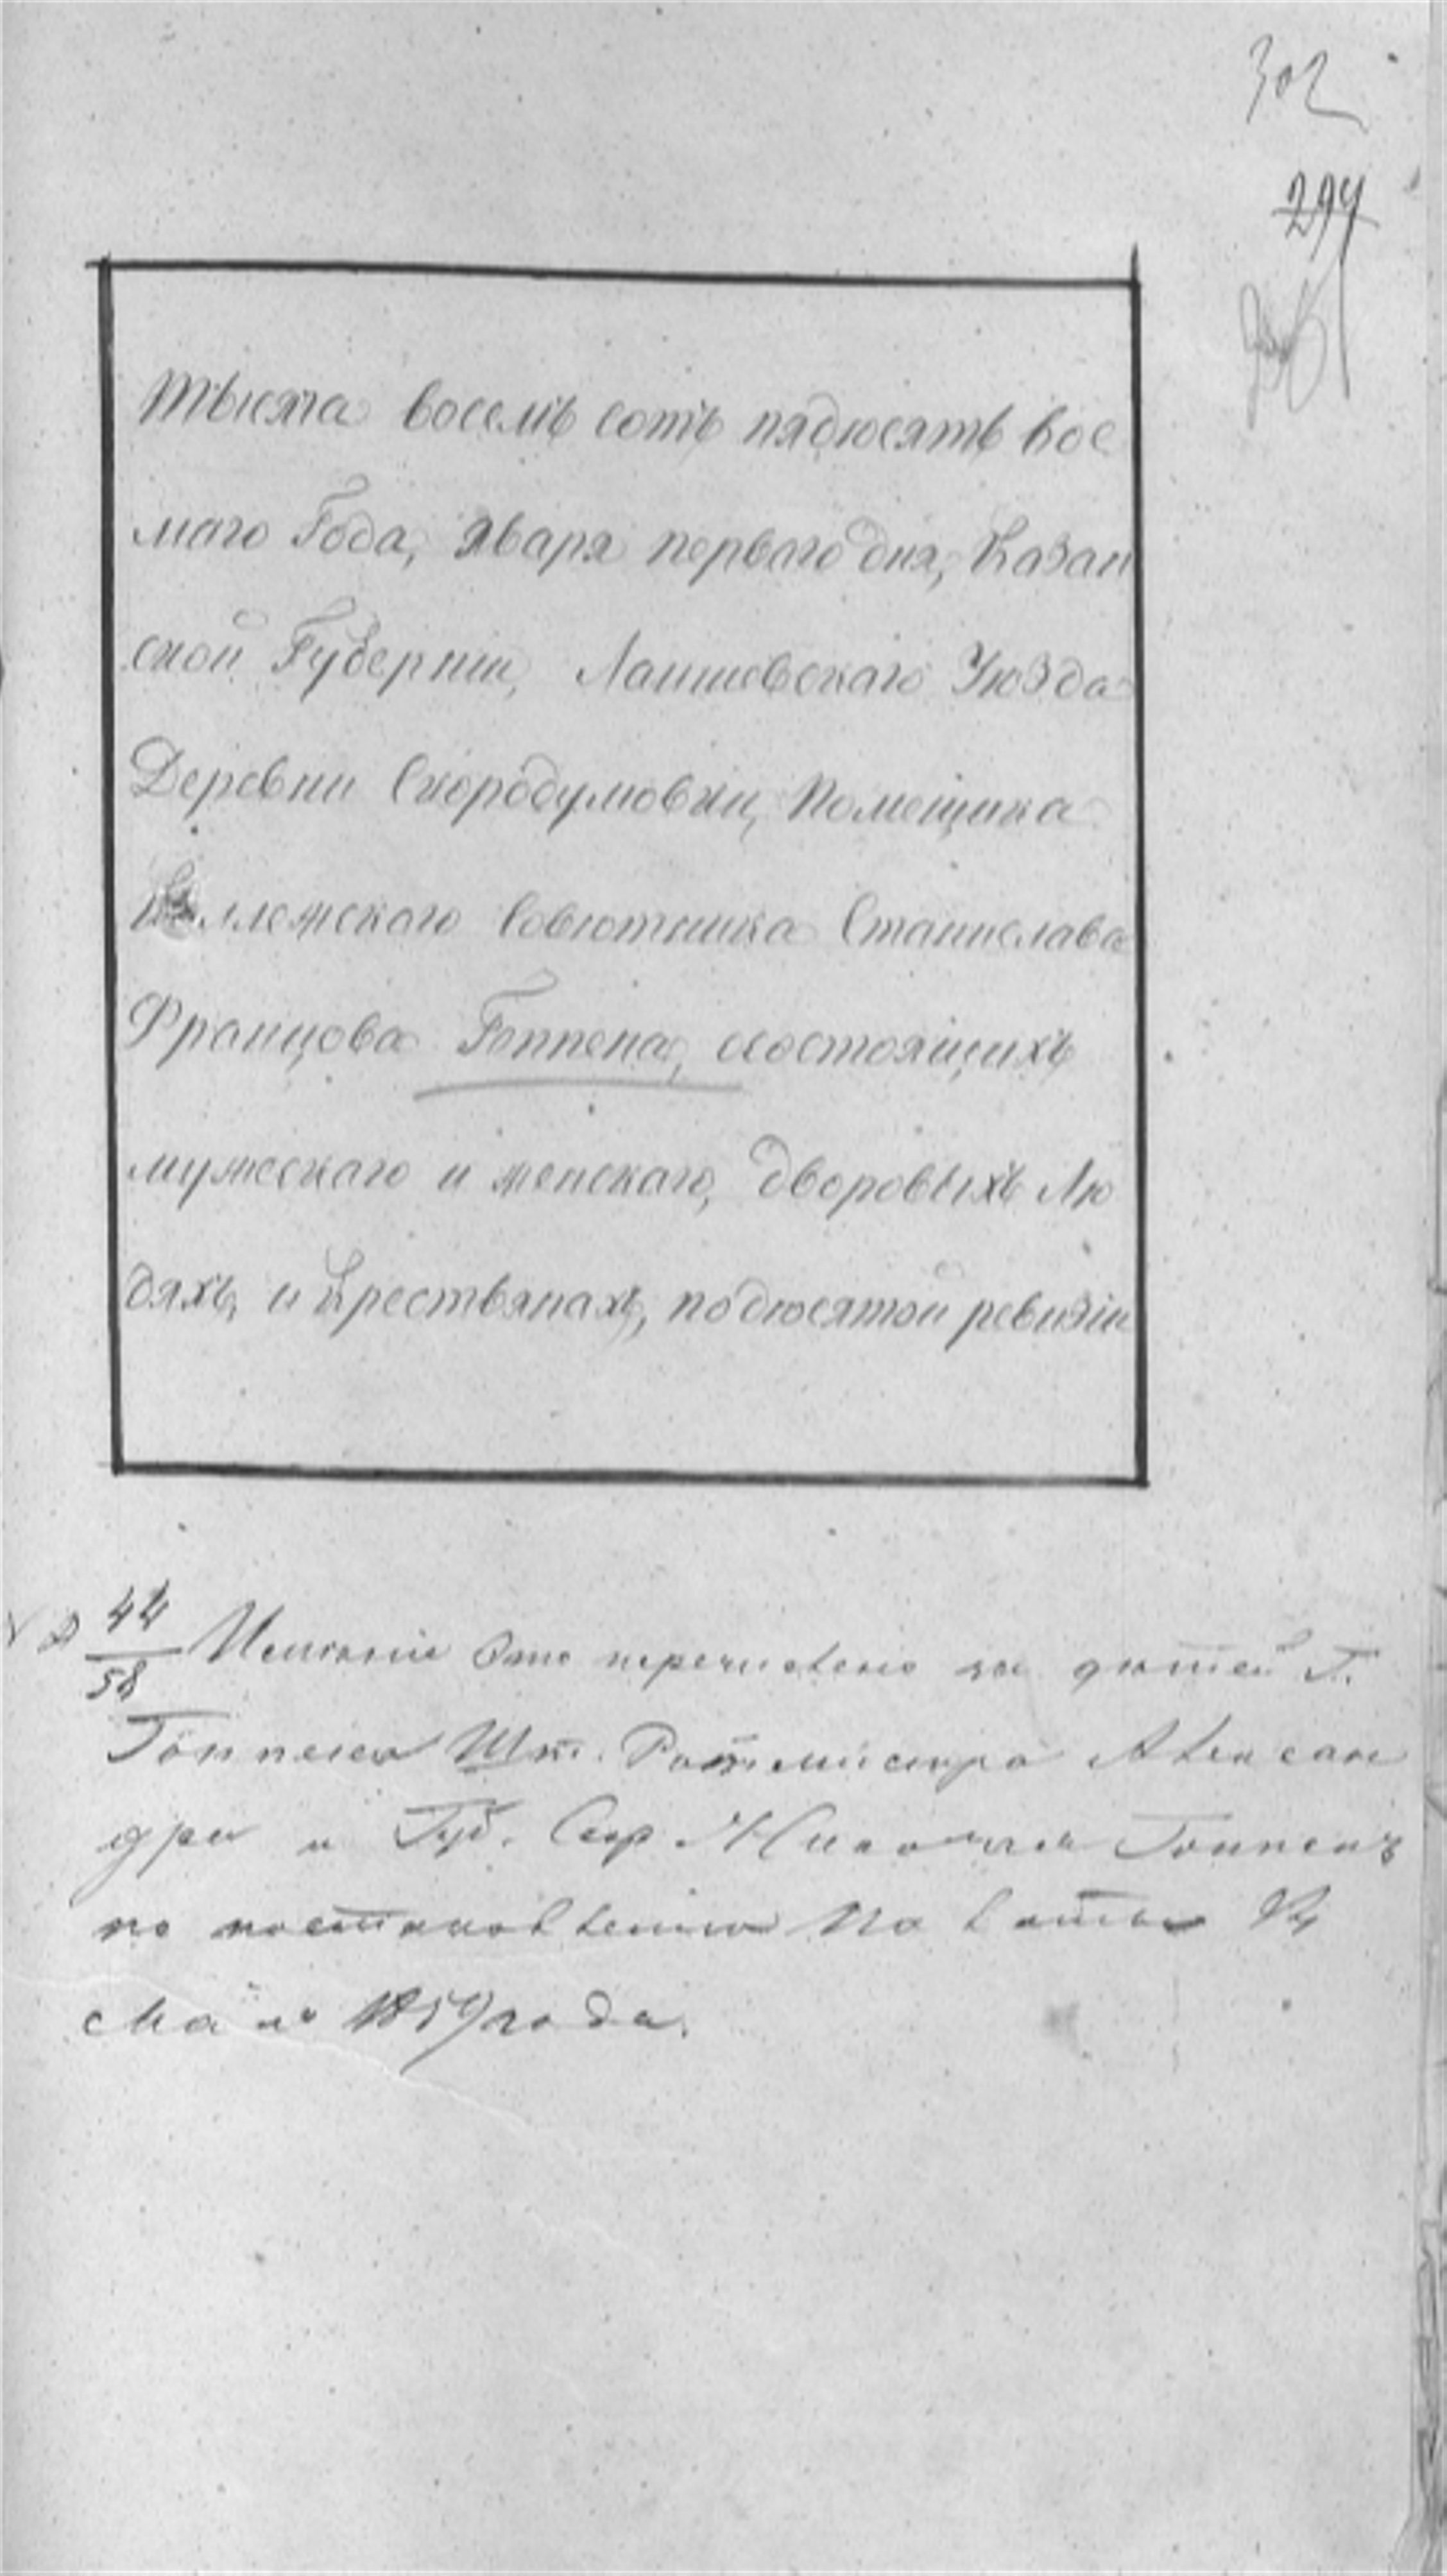 302
294
Тысяча восемь сотъ пядюсятъ вос
маго Года, Яваря перваго дня, Казан
ской Губерніи, Лаишевскаго Уѣзда
Деревни Скородумовки, Помещика
Коллежскаго Совѣтника Станислава
Францова Гоппена, осостоящихъ
мужескаго и женскаго, дворовыхъ Лю
дяхъ, и Крестьянахъ, подѣсятой ревизіи
44
58
Имѣніе это перечислено за дѣтей Г.
Гоппена Шт. Ротмистра Алексан
дра и Губ. Сер. Николая Гоппенъ
по постановленію Палаты
Мая 1859 года.